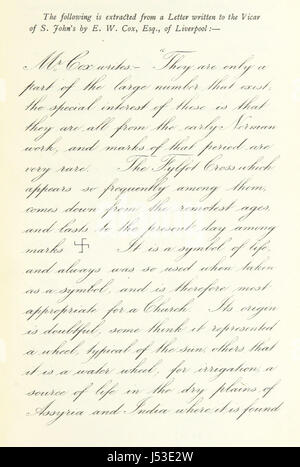 The following is extracted from a Letter written to the Vicar
of S. John's by E. W. Cox, Esq., of Liverpool:—
Mr. Cox writes:— "They are only a
part of the large number that exist,
the special interest of these is that
they are all from the early Norman
work, and marks of that period are
very rare. The Fylfot Cross which
appears so frequently among them,
comes down from the remotest ages,
and lasts to the present day among
marks 卐 It is a symbol of life,
and always was so used when taken
as a symbol, and is therefore most
appropriate for a Church. Its origin
is doubtful, some think it represented
a wheel, typical of the sun, others that
it is a water wheel, for irrigation, a
source of life in the dry plains of
Assyria and India where it is found
alamy
Image ID: J53E2W
www.alamy.com